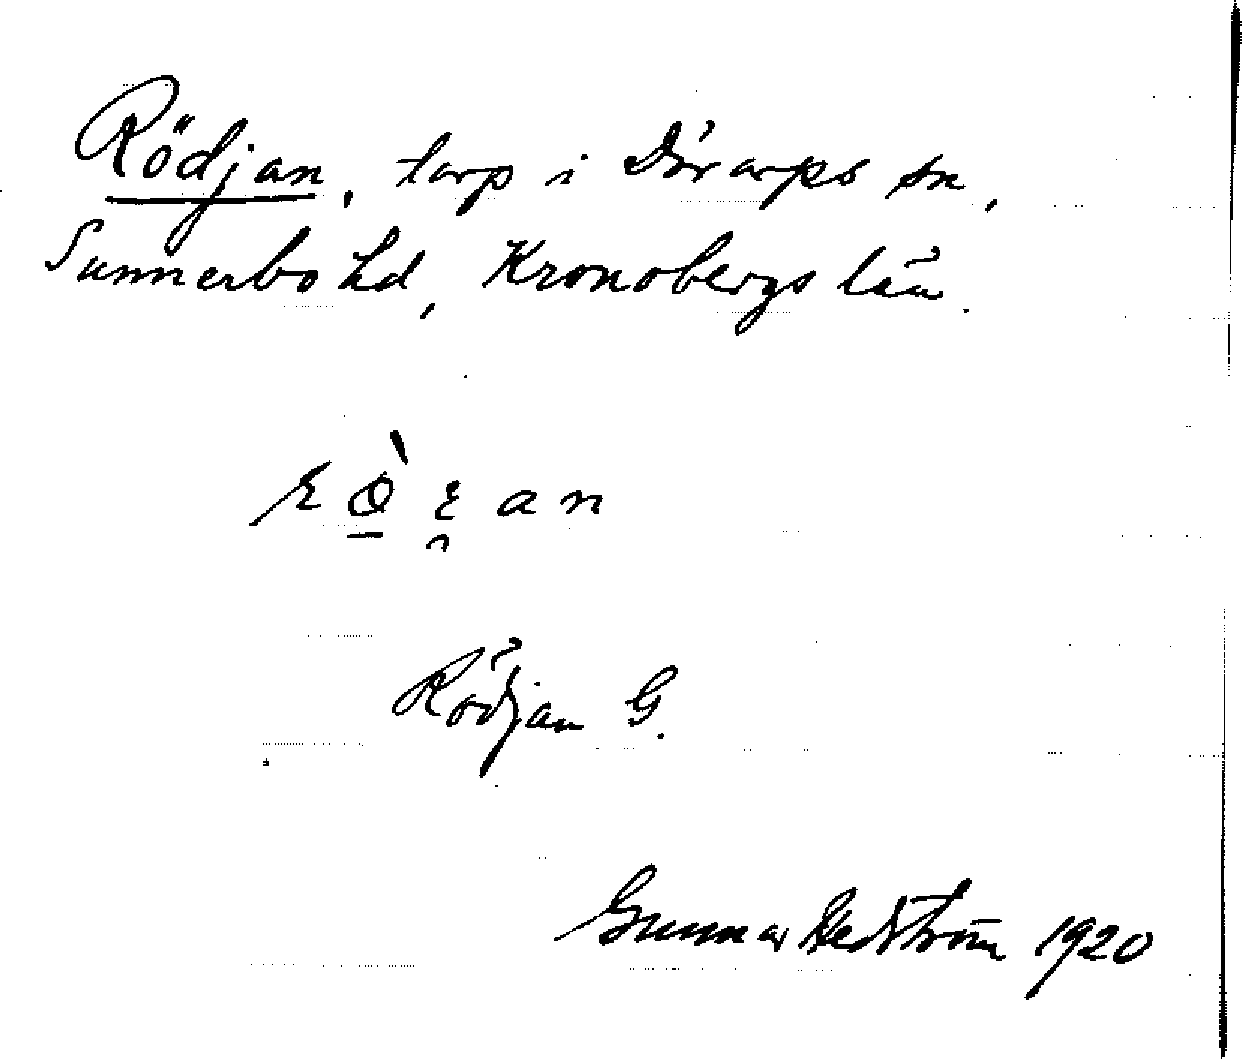 Rödjan, torp i Dörarps sn,
Sunnerbo hd, Kronobergs län.
Rödjan G.
Gunnar Hedström 1920